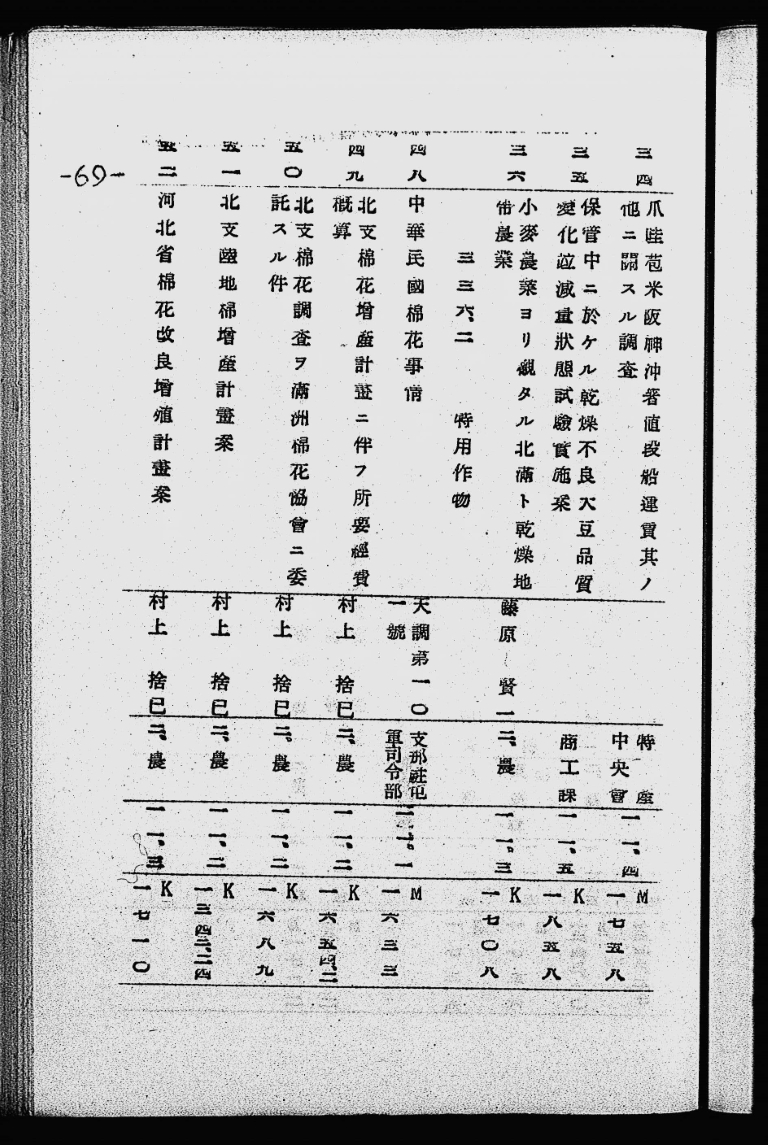 三四
爪哇苞米阪神沖著値段船運賃其ノ
他ニ關スル調査
特産
中央會
一一、四
M
一七五八
三五
保管中ニ於ケル乾燥不良大豆品質
變化竝減量狀態試驗實施案
商工課
一一、五
K
一八五八
三六
小麥農業ヨリ觀タル北滿ト乾燥地
帶農業
藤原 賢一
二、農
一一、三
K
一七〇八
三三六、二 特用作物
四八
中華民國棉花事情
天調第一〇
一號
支那駐屯
軍司令部
一一、一
M
一六三三
四九
北支棉花增産計畫ニ伴フ所要經費
概算
村上 捨巳
二、農
一一、二
K
一六五四、二
五〇
北支棉花調査ヲ滿洲棉花協會ニ委
託スル件
村上 捨巳
二、農
一一、二
K
一六八九
五一
北支陸地棉增産計畫案
村上 捨巳
二、農
一一、二
K
一三四三、二四
五二
河北省棉花改良增殖計畫案
村上 捨巳
二、農
一一、三
K
一七一〇
-69-